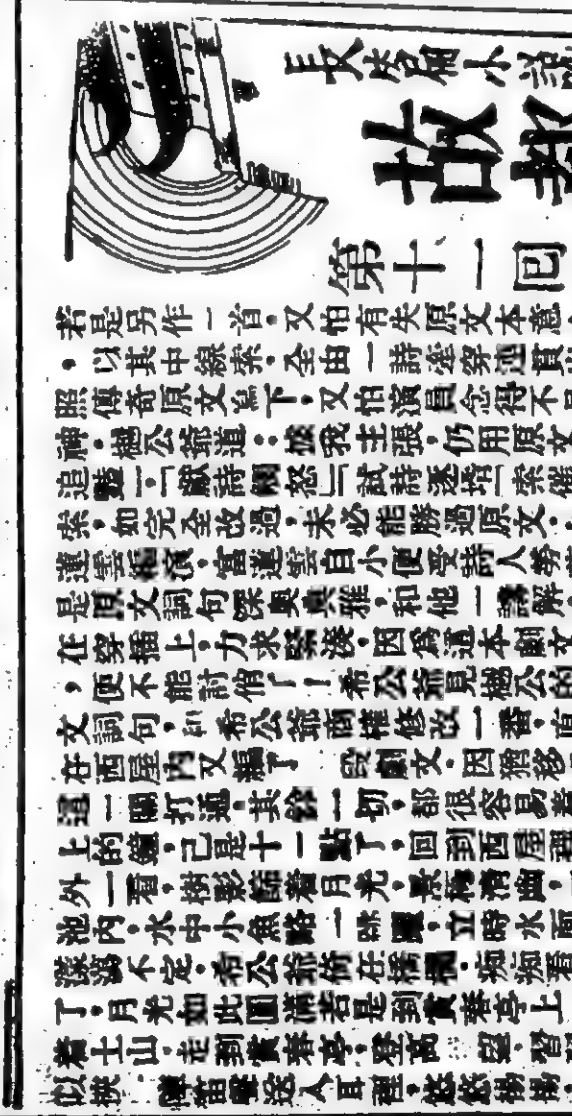 長篇小說
故都
第十一回
若是另作一首，又怕有失原文本意，
，以其中線索，全由一詩穿貫
照傳奇原文寫下，又怕演員念得不
神，樾公爺道：依我主張，仍用原文
這齣一「獻詩觸怒」「試詩逐婿」索
索，如完全改過，未必能勝過原文，
蓮雲　演，富蓮雲自小便受詩人
是原文詞句深奧典雅，和他一講解，
在穿插上，力求緊湊，因爲這本劇文
，便不能討俏——希公爺見樾公的
文詞句，和希公爺商榷修改一番，直
在西屋內又編了一段劇文，因猶移
這一關打通，其餘一切，都很容易着
上的鐘，已是十一點了，回到西屋
外一看，樹影篩着月光，景極清幽，
池內，水中小魚略一跳躍，立時水面
漾漾不定，希公爺倚在橋欄，痴痴看
了，月光如此圓滿若是到賞春亭上
着土山，走到賞春亭，登高一望，習
似挾一陣笛聲送入耳裡，悠悠揚揚，